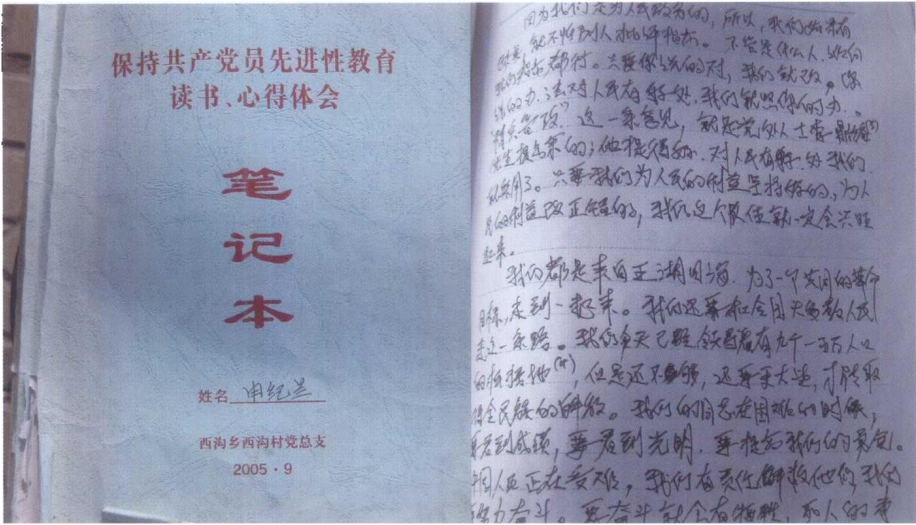 保持共产党员先进性教育
读书、心得体会
笔记本
姓名 申纪兰
西沟乡西沟村党总支
2005·9
因为我们是为人民服务的,所以,我们如果有
就不怕别人批评指出。不管是什么人,
都行。只要你说的对,我们就改。你
的办法对人民有好处,我们就照你的办。
这一条意见,就是党外人士李鼎铭
先生提出来的;他提得好,对人民有好处,我们
采用了。只要我们为人民的利益坚持好的,为人
的利益改正错的,我们这个队伍就一定会兴旺
起来。
我们都是来自五湖四海,为了一个共同的革命
目标,走到一起来。我们还要和全国大多数人民
走这一条路。我们今天已经领导着有九千一百万人口
的根据地,但是还不够,还要更大些,才能取
得全民族的解放。我们的同志在困难的时候,
要看到成绩,要看到光明,要提高我们的勇气。
中国人民正在受难,我们有责任解救他们,我们
努力奋斗。要奋斗就会有牺牲,死人的事